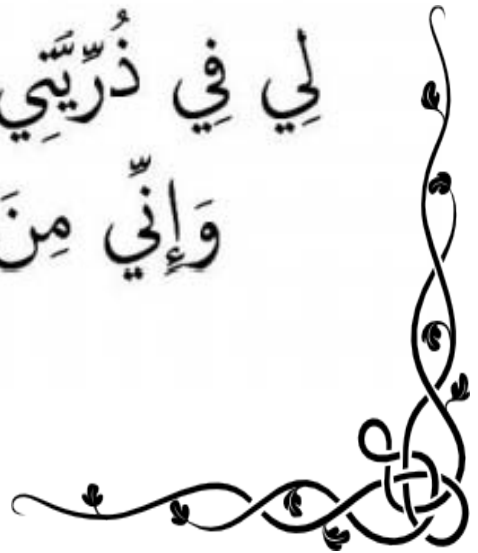 لِي فِي ذُرِّيَّتِي
وَإِنِّي مِنَ